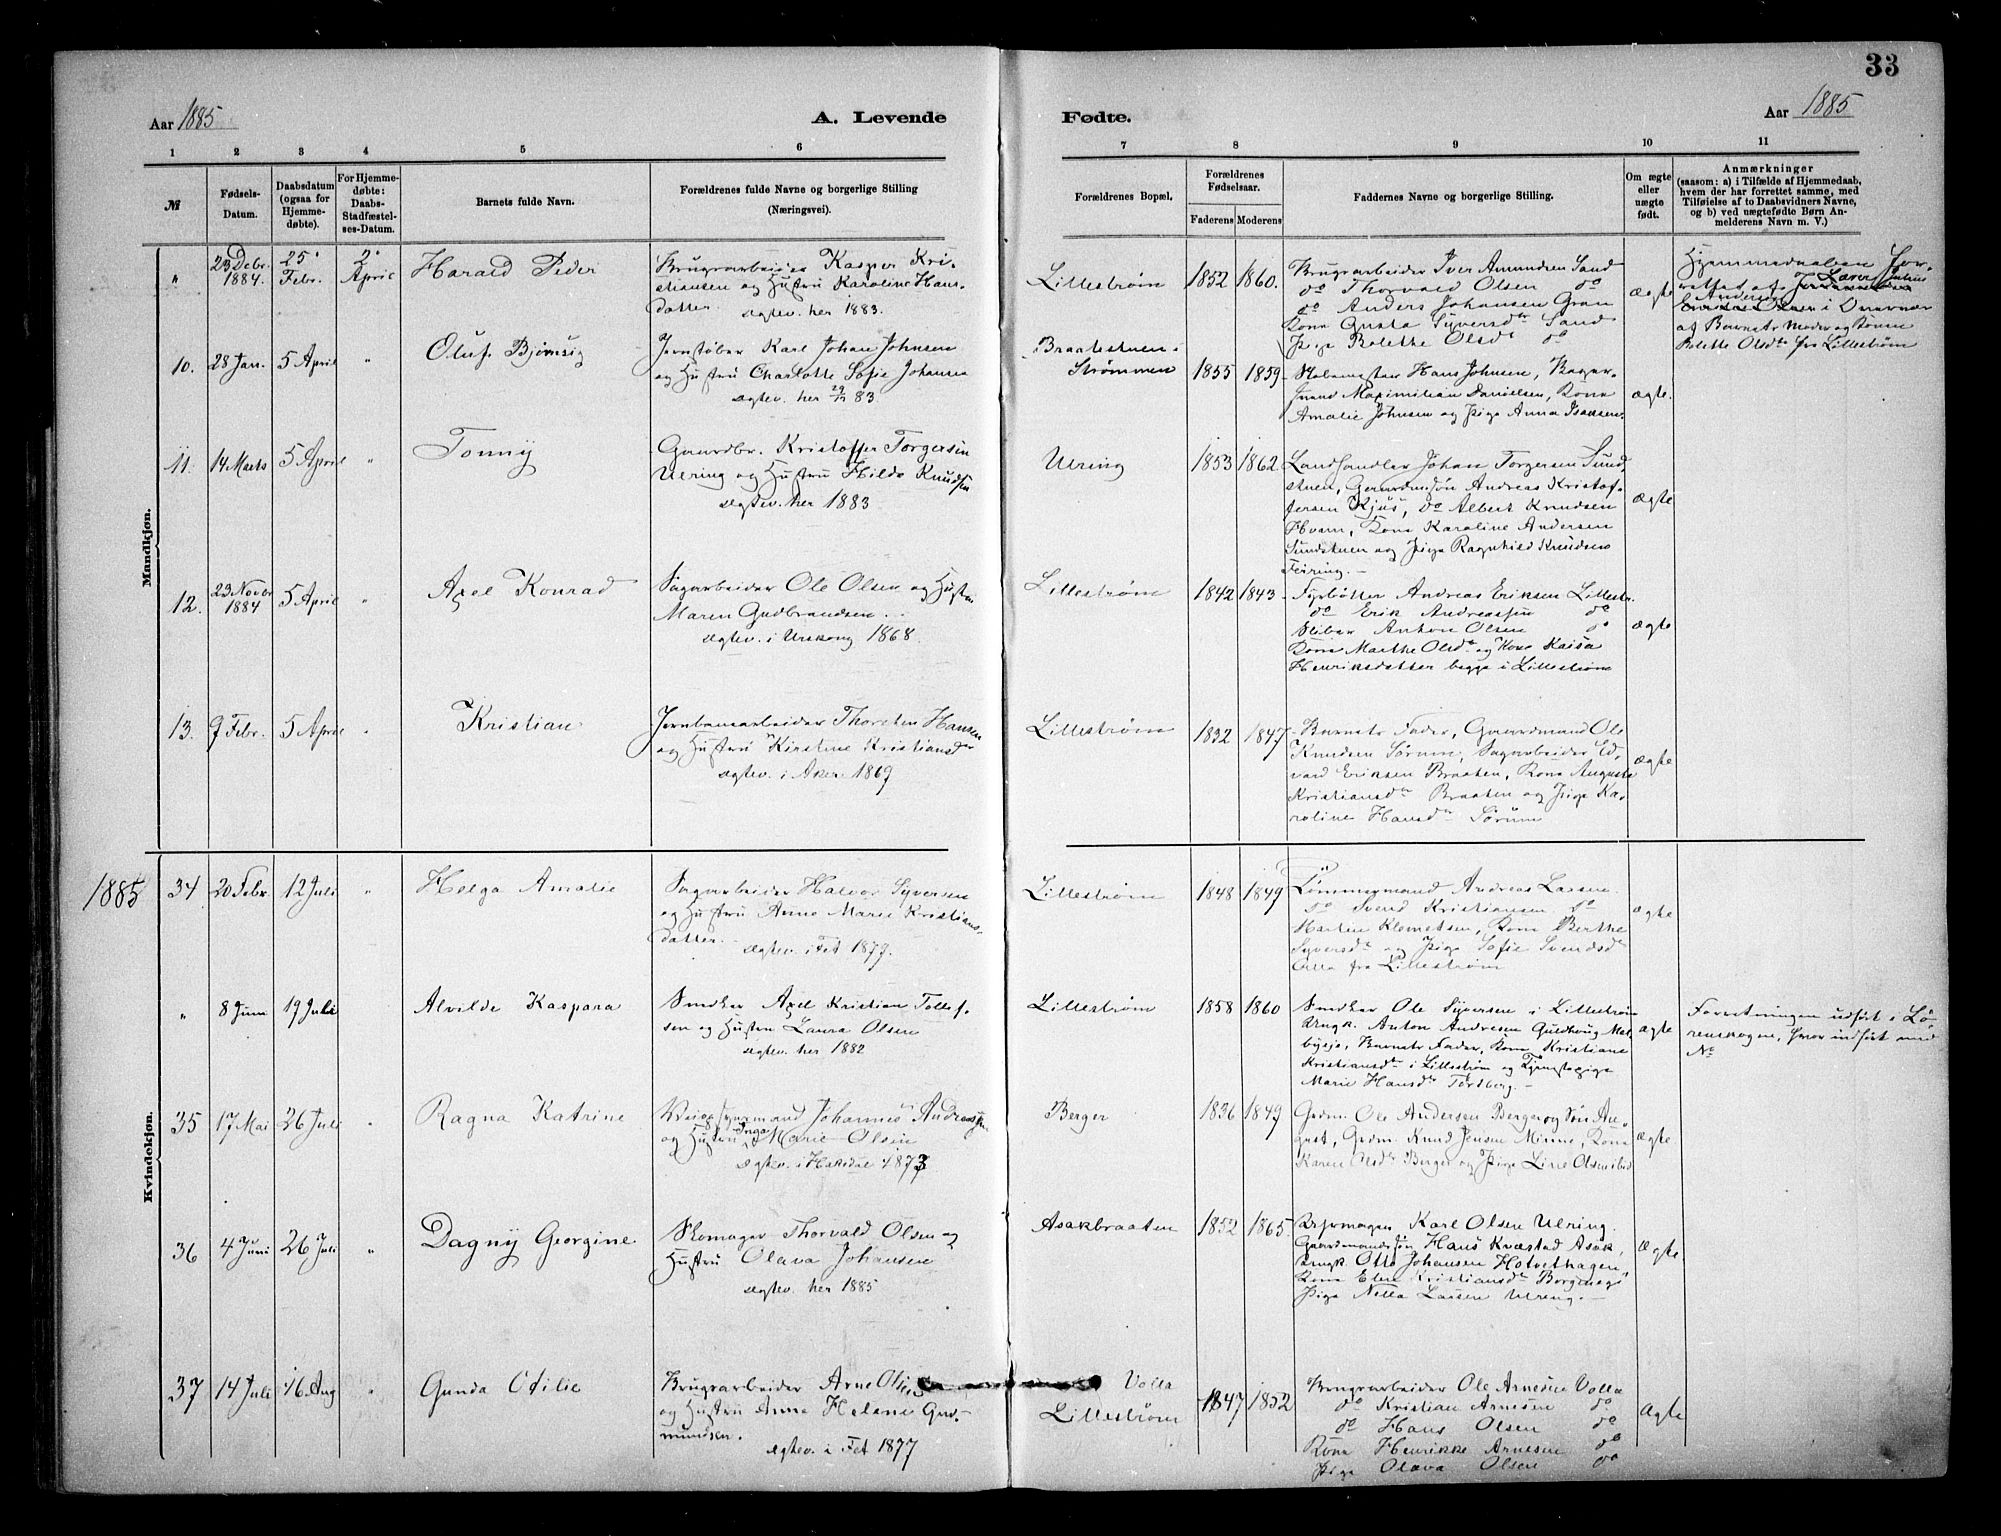 33
Aar 1885
A. Levende
Fødte.
Aar 1885
1 2 3 4 5 6
7 8 9 10 11
№
Fødsels-
Datum.
Daabsdatum
(ogsaa for
Hjemme-
døbte).
For Hjemme-
døbte:
Daabs-
Stadfæstel-
ses-Datum.
Barnets fulde Navn.
Forældrenes fulde Navne og borgerlige Stilling
(Næringsvei).
Forældrenes Bopæl.
Forældrenes
Fødselsaar.
Faderens Moderens
Faddernes Navne og borgerlige Stilling.
Om ægte
eller
uægte
født.
Anmærkninger
(saasom: a) i Tilfælde af Hjemmedaab,
hvem der har forrettet samme, med
Tilføielse af to Daabsvidners Navne,
og b) ved uægtefødte Børn An-
melderens Navn m. V.)
Mandkjøn.
"
23 Debr.
1884.
25
Febr.
2
April
Harald Peder
Brugsarbeider Kasper Kri-
stiansen og Hustru Karoline Hans-
datter. ægtev. her 1883.
Lillestrøm
1852 1860.
Brugsarbeider Iver Amundsen Sand
do Thorvald Olsen do
do Anders Johansen Gran
Kone Gusta Syversdr Sand
Pige Bolette Olsdr do
ægte
Hjemmedaaben for-
rettet af Lærer
Andersen
af Barnets Moder og Konen
Bolette Olsdr fra Lillestrøm
10. 28 Jan. 5 April "
Oluf
Jernstøber Karl Johan Johnsen
og Hustru Charlotte Sofie Johansen
ægtev. her 83.
Braatestuen
Strømmen
1855 1859
Hans Johnsen,
Maximilian Danielsen, Kone
Amalie Johnsen og Pige Anna Isaksen.
ægte.
11. 14 Marts 5 April "
Tonny
Gaardbr. Kristoffer Torgersen
Ulring og Hustru Hilda Knudsen
ægtev. her 1883
Ulring
1853 1862.
Landhandler Johan Torgersen Sund-
stuen, Gaardmdsøn Andreas Kristof-
fersen Kjus, do Albert Knudsen
Hvam, Kone Karoline Andersen
Sundstuen og Pige Ragnhild Knudsen
Feiring.-
ægte
12. 23 Novbr
1884
5 April "
Axel Konrad
Sagarbeider Ole Olsen og Hustru
Maren Gudbrandsen.
ægtev. i Urskoug 1868.
Lillestrøm
1842 1843
Fyrbøtter Andreas Eriksen Lillestr.
do Erik Andreassen do
Sliber Anton Olsen do
Kone Marthe Olsdr og Kone Kaisa
Henriksdatter begge i Lillestrøm
ægte
13. 9 Febr. 5 April "
Kristian
Jernbanearbeider Thorsten Hansen
og Hustru Kirstine Kristiansdr
ægtev. i Aker 1869
Lillestrøm
1832 1847
Barnets Fader, Gaardmand Ole
Knudsen Sørum, Sagarbeider Ed-
vard Eriksen Braaten, Kone Augusta
Kristiansdr Braaten og Pige Ka-
roline Hansdr Sørum
ægte
Kvindekjøn.
1885
34 20 Febr. 12 Juli "
Helga Amalie
Sagarbeider Halvor Syversen
og Hustru Anne Marie Kristians-
datter. ægtev. i Fet 1879.
Lillestrøm
1848 1849
Tømmermand Andreas Larsen
do Svend Kristiansen do
Martin Klemetsen, Kone Berthe
Syversdr og Pige Sofie Svendsdr
Alle fra Lillestrøm
ægte
" 8 Juni 19 Juli
Alvilde Kaspara
Snedker Axel Kristian Tollef-
sen og Hustru Laura Olsen
ægtev. her 1882
Lillestrøm
1858 1860
Snedker Ole Syversen i Lillestrøm
Ungk. Anton Andresen Guldhoug
Barnets Fader, Kone Kristiane
Kristiansdr i Lillestrøm og Tjenestepige
Marie Hansdr Tordberg.-
ægte
Forretningen udført i Lø-
renskogen, hvor indført med
No
35 17 Mai 26 Juli "
Ragna Katrine
Johannes Andreassen
og Hustru Inga Marie Olsen
ægtev. i Hakedal 1873
Berger
1836 1849
Grdm. Ole Andersen Berger og Søn Au-
gust, Grdm. Knud Jensen Minne, Kone
Karen Olsdr Berger og Pige Line Olsen ibid
ægte
36 4 Juni 26 Juli "
Dagny Georgine
Skomager Thorvald Olsen og
Hustru Olava Johansen
ægtev. her 1885
Asakbraaten
1852 1865.
Karl Olsen Ulring.
Gaardmandssøn Hans Kvæstad Asak,
Ungk. Otto Johansen Hotvethagen,
Kone Elen Kristiansdr
Pige Nilla Larsen Ulring.-
ægte
37 14 Juli 16 Aug "
Gunda Otilie
Brugsarbeider Arne
og Hustru Anna Helene Gud-
mundsen.
ægtev. i Fet 1877
Volla
Lillestrøm
1847 1852
Brugsarbeider Ole Arnesen Volla
do Kristian Arnesen do
do Hans Olsen do
Kone Henrikke Arnesen do
Pige Olava Olsen do
Ægte